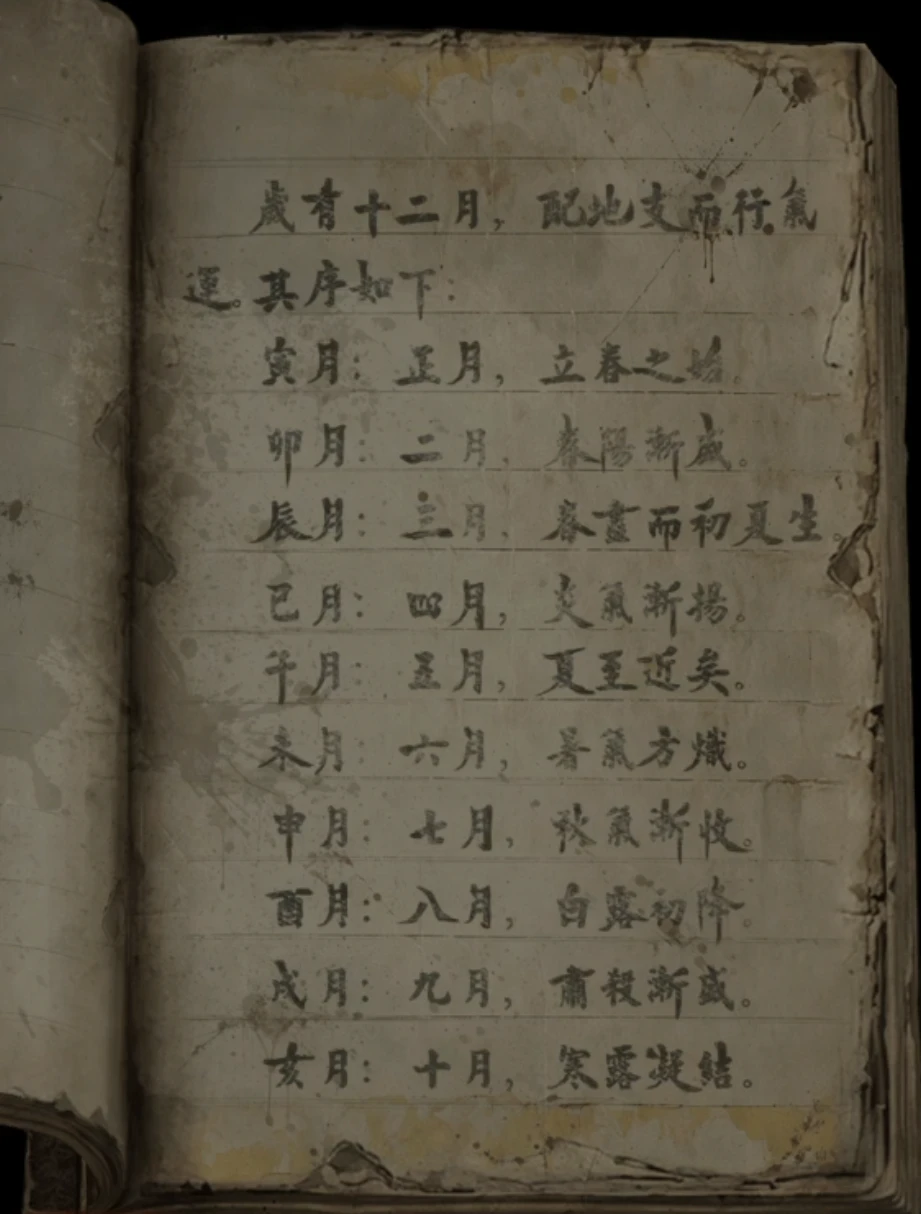 歲有十二月，配地支而行氣
運。其序如下：
寅月：正月，立春之始。
卯月：二月，春陽漸盛。
辰月：三月，春盡而初夏生。
巳月：四月，炎氣漸揚。
午月：五月，夏至近矣。
未月：六月，暑氣方熾。
申月：七月，秋氣漸收。
酉月：八月，白露初降。
戌月：九月，肅殺漸盛。
亥月：十月，寒露凝結。